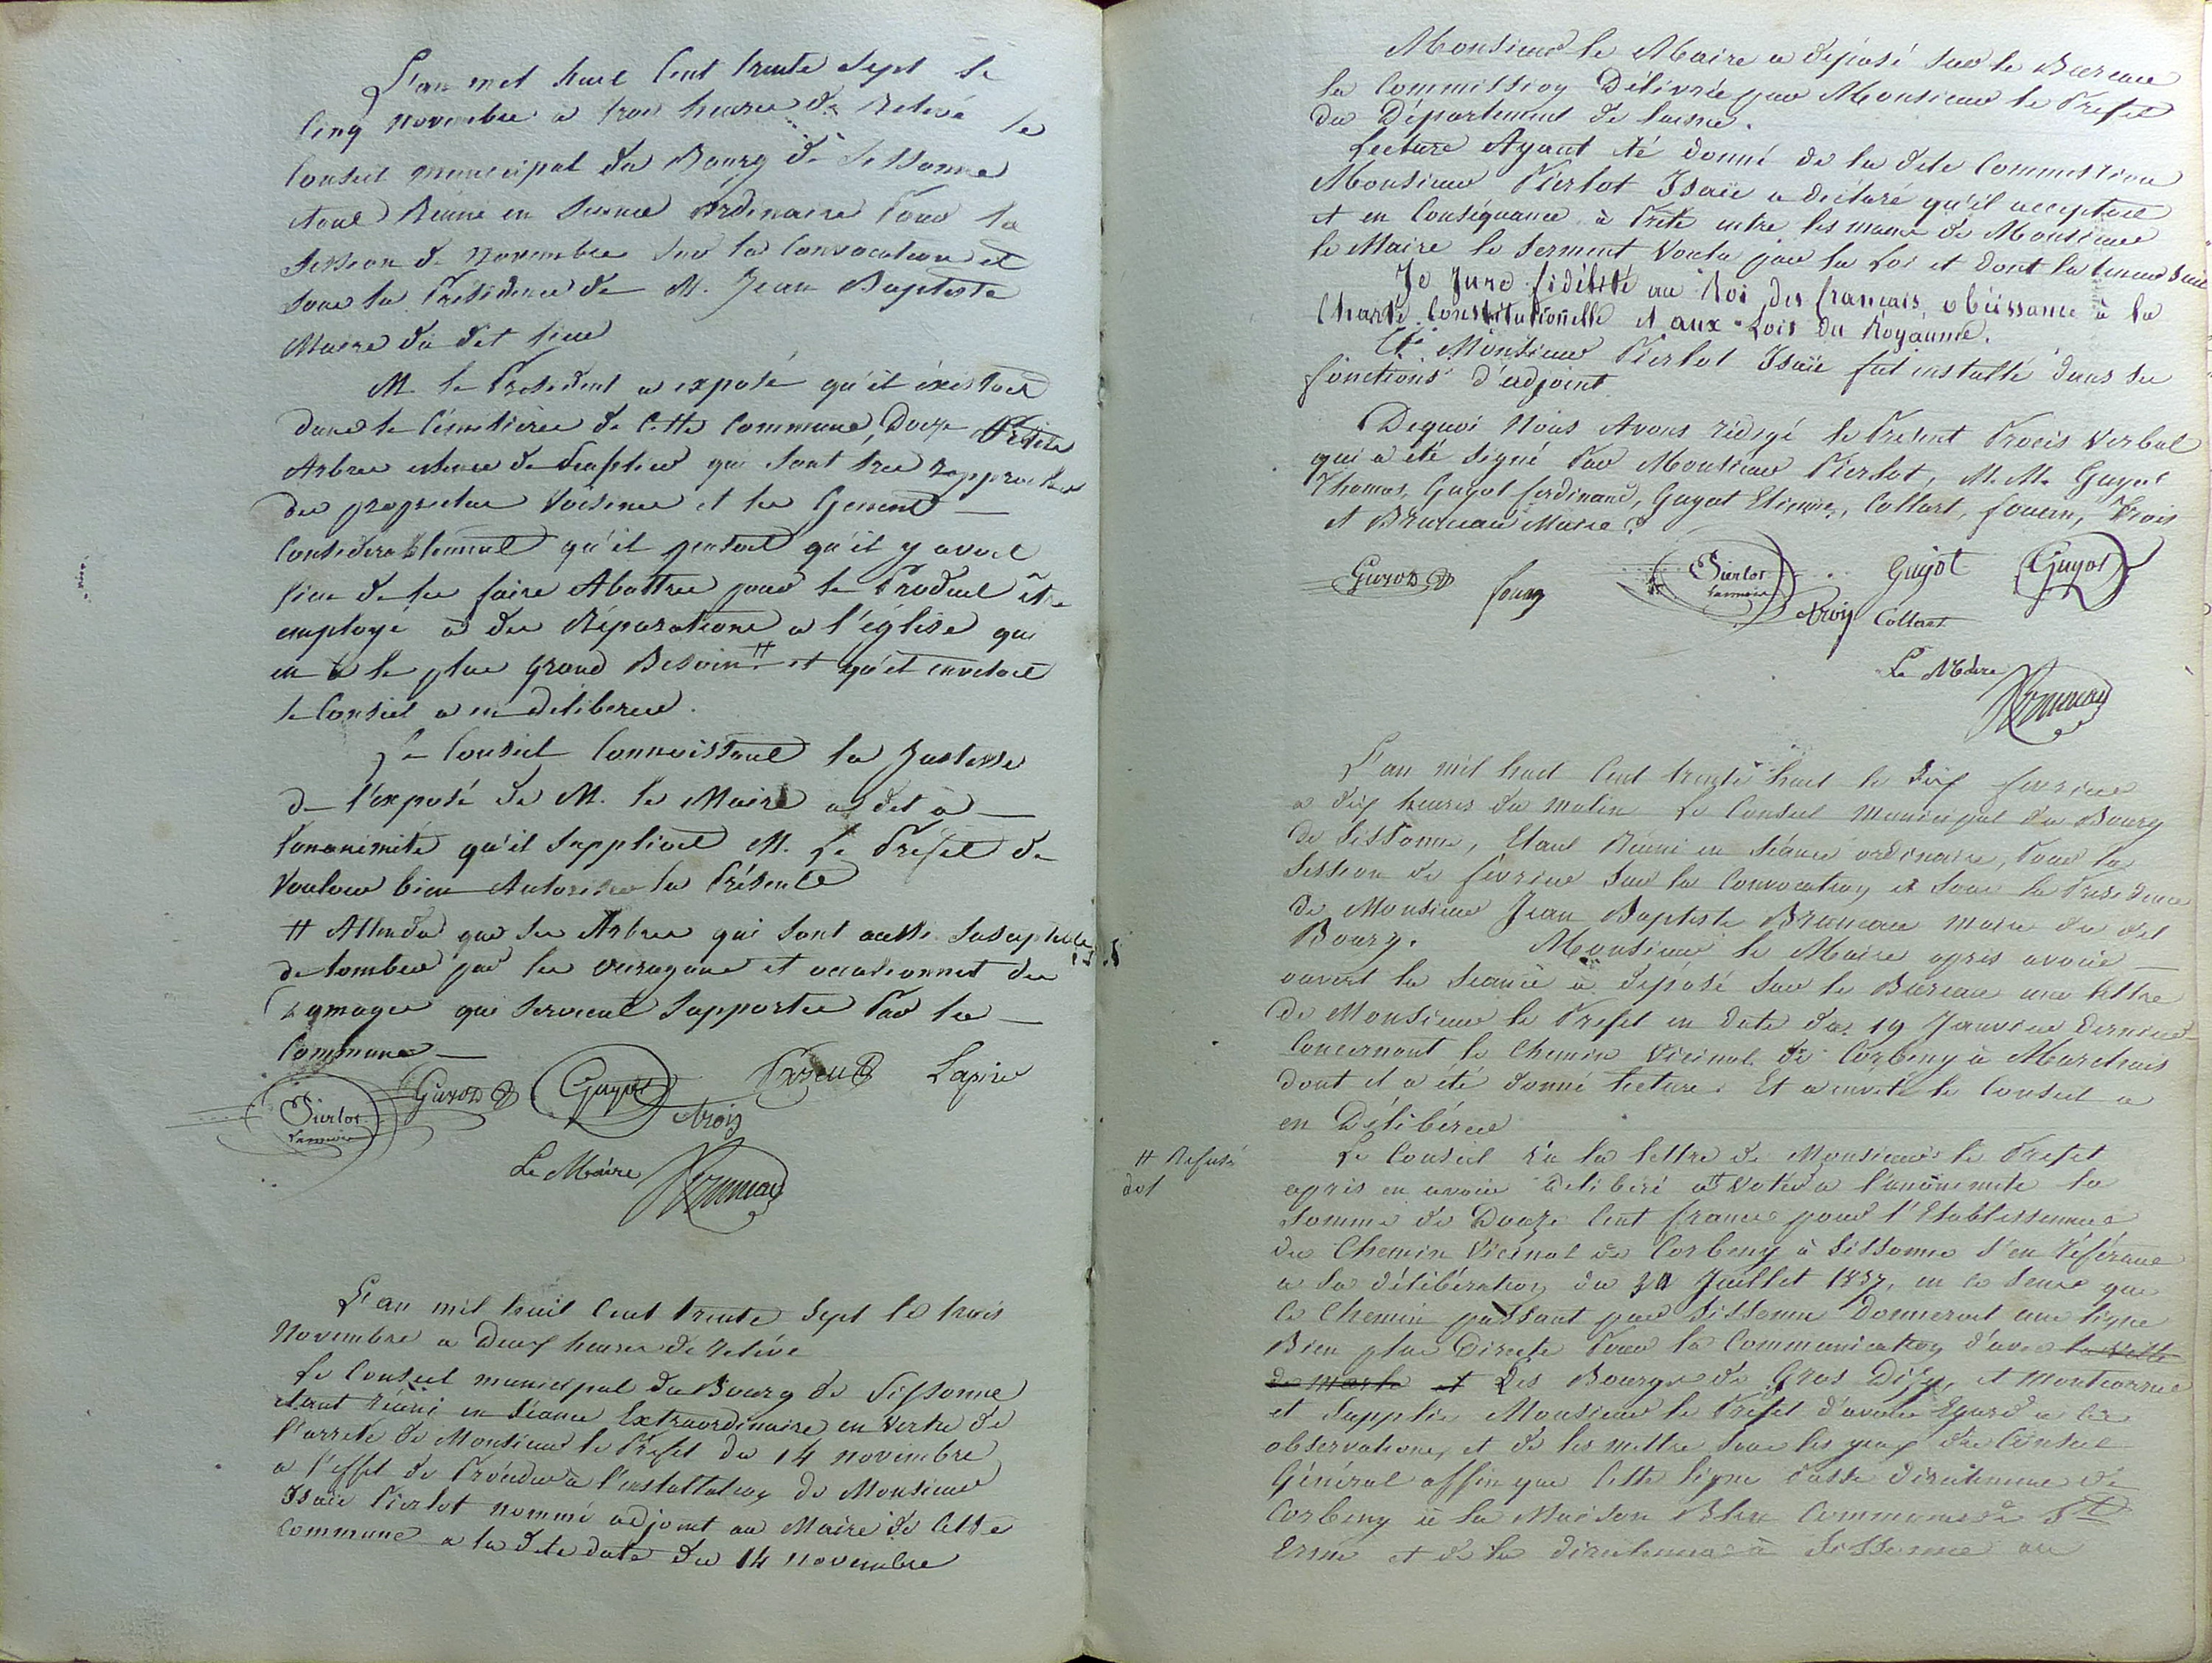 L'an mil huit Cent trente Sept le
Cinq Novembre a trois heures de Relevé le
Conseil municipal du Bourg de Sissonne
étant Réuni en Séance ordinaire Pour la
Session de Novembre Sur la Convocation et
Sous la Présidence de M. Jean Baptiste
Maire du dit lieu
M. le President a exposé qu'il éxistoit
dans le Cimetière de Cette Commune, Douze
Arbres de qui sont très rapprochés
des propriétés Voisines et les Genent
Considerablement qu'il pensoit qu'il y avoit
lieu de les faire Abattre pour le Produit être
employé à des Réparations a l'église qui
en a le plus grand Besoin # et qu'il invitoit
le Conseil a en deliberer.
Le Conseil Connoissant la Justesse
de l'exposé de M. le Maire a dit à
l'unanimité qu'il Supplioit M. Le Préfet de
Vouloir bien Autoriser la Présente
# Attendu que les Arbres qui sont aussi Susceptibles
de tomber par les ouragans et occasionnet des
Domages qui Seroient Supportés Par la
Commune
Pierlot Guyot Guyot Vrois Lapire
Le Maire Bruneau
L'an mil huit Cent trente Sept le trois
Novembre a Deux heures de relévé
Le Conseil municipal du Bourg de Sissonne
étant réuni en Séance Extraordinaire en Vertu de
l'arrete de Monsieur le Prefet du 14 novembre
a l'effet de Procéder à l'installation de Monsieur
Isaïe Pierlot nommé adjoint au Maire de Cette
Commune a la dite date du 14 novembre
Monsieur le Maire a déposé sur le Bureau
la Commission Délivrée par Monsieur le Prefet
du Département de laisne.
Lecture Ayant été donné de la dite Commission
Monsieur Pierlot Isaïe a déclaré qu'il acceptoit
et en Conséquance à Prêté entre les mains de Monsieur
le Maire le Serment Voulu par la Loi et dont la teneur suit
Je Jure fidélité au Roi des français, obéissance à la
Charte Constitutionelle et aux Lois du Royaume.
Et Monsieur Pierlot Isaïe fut installé dans ses
fonctions d'adjoint
Dequoi Nous Avons rédigé le Présent Procès Verbal
qui a été signé Par Monsieur Pierlot, M.M. Guyot
Thomas, Guyot ferdinand, Guyot Etienne, Collart, fouan, Vrois
et Bruneau Maire
Guyot fouan Pierlot Guyot Guyot
Vrois Collart
Le Maire
Bruneau
L'an mil huit Cent trente huit le dix fevrier
a dix heures du matin Le Conseil Municipal du Bourg
de Sissonne, Etant Réuni en Séance ordinaire, Pour la
Session de fevrier Sur la Convocation et Sous la Presidence
de Monsieur Jean Baptiste Bruneau Maire du dit
Bourg. Monsieur le Maire après avoir
ouvert la Séance a déposé Sur le Bureau une lettre
de Monsieur le Prefet en Date du 19 Janvier Dernier
Concernant le Chemin Vicinal de Corbeny à Marchais
dont il a été donné lecture. Et a invité le Conseil a
en Délibérer
Le Conseil Vu la lettre de Monsieur le Prefet
# Refusé
apres en avoir délibéré a # Voté a l'unanimité la
Somme de Douze Cent francs pour l'Etablissement
du Chemin Vicinal de Corbeny à Sissonne S'en référant
a Sa délibération du Juillet 1837, en ce Sens que
Ce Chemin passant par Sissonne Donneroit une ligne
Bien plus Directe Pour la Communication d'avec la Ville
de Marle et Les Bourgs de Gros Dizy, et Montcornet
et Supplie Monsieur le Préfet d'avoir Egard a Ces
observations, et de les mettre sous les yeux du Conseil
Général affin que Cette ligne Passe directement de
Corbeny à la Maison Bleu Commune de St
Erme et de la directement à Sissonne au